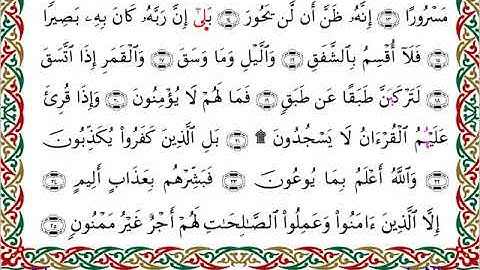 مَسْرُورًا ١٣ إِنَّهُۥ ظَنَّ أَن لَّن يَحُورَ ١٤ بَلَىٰٓ إِنَّ رَبَّهُۥ كَانَ بِهِۦ بَصِيرًا
١٥ فَلَآ أُقْسِمُ بِٱلشَّفَقِ ١٦ وَٱلَّيْلِ وَمَا وَسَقَ ١٧ وَٱلْقَمَرِ إِذَا ٱتَّسَقَ
١٨ لَتَرْكَبَنَّ طَبَقًا عَن طَبَقٍ ١٩ فَمَا لَهُمْ لَا يُؤْمِنُونَ ٢٠ وَإِذَا قُرِئَ
عَلَيْهُمُ ٱلْقُرْءَانُ لَا يَسْجُدُونَ ۩ ٢١ بَلِ ٱلَّذِينَ كَفَرُوا۟ يُكَذِّبُونَ
٢٢ وَٱللَّهُ أَعْلَمُ بِمَا يُوعُونَ ٢٣ فَبَشِّرْهُم بِعَذَابٍ أَلِيمٍ ٢٤
إِلَّا ٱلَّذِينَ ءَامَنُوا۟ وَعَمِلُوا۟ ٱلصَّٰلِحَٰتِ لَهُمْ أَجْرٌ غَيْرُ مَمْنُونٍۭ ٢٥